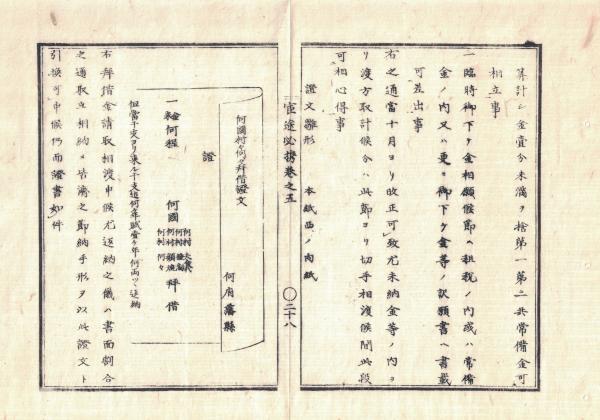 算計シ金壹分未満ヲ捨第一第二共常備金可
相立事
一臨時御下ケ金相願候節ハ租税ノ内或ハ常備
金ノ内又ハ更ニ御下ケ金等ノ訳願書ヘ書載
可差出事
右之通當十月ヨリ改正可致尤未納金等ノ内ヨ
リ渡方取計候分ハ此節ヨリ切手相渡候間此段
可相心得事
證文雛形 本紙西ノ内紙
官途必携巻之五
〇二十八
何國村々何々拝借證文
何府藩縣
證
一金何程 何國
何村
何村
何村 何々
拝借
但當干支ヨリ来ル干支迠何ケ年賦壹ケ年何両ツヽ返納
右拝借金請取相渡申候尤返納之儀ハ書面割合
之通取立相納メ皆済之節納手形ヲ以此證文ト
引換可申候仍而證書如件